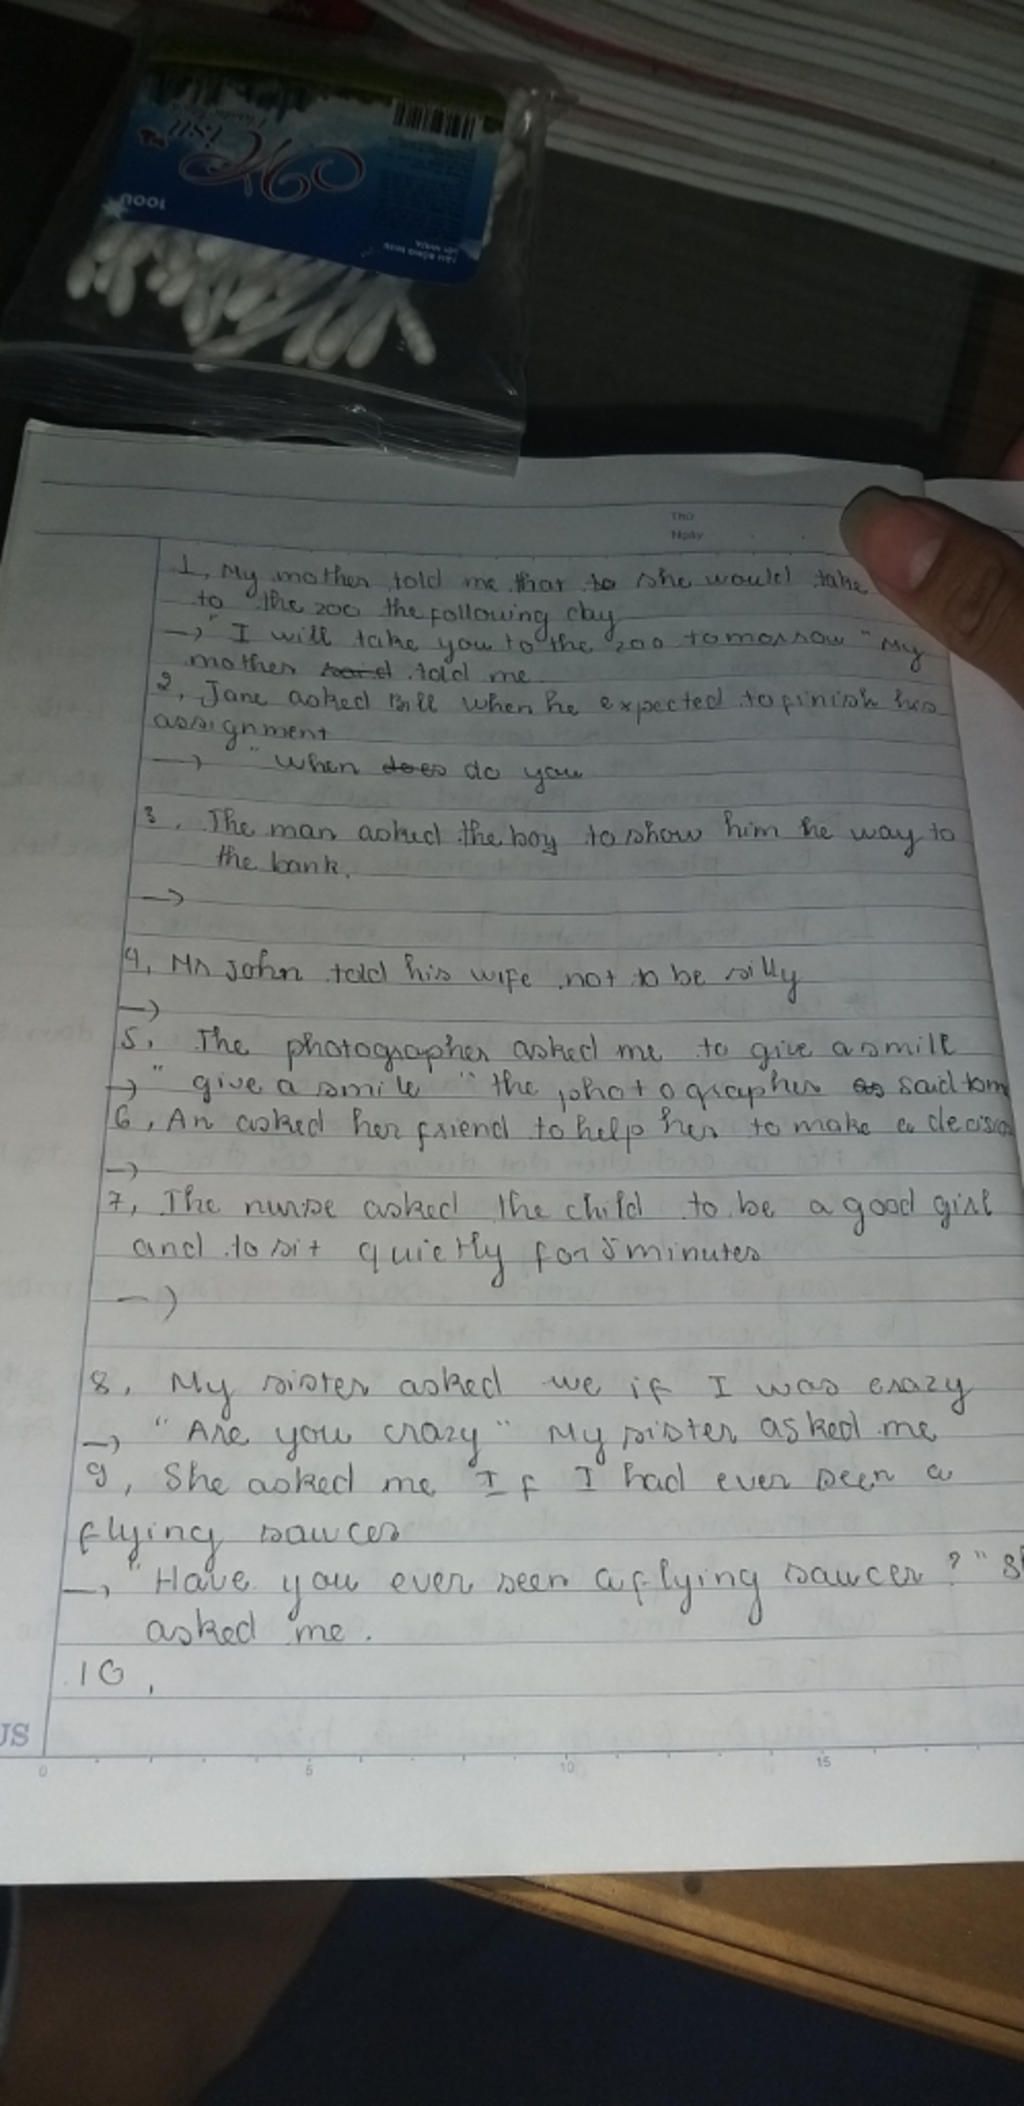 100U
Thứ
Ngày
1, My mother told me that to she would take
to the zoo the following day
→ "I will take you to the zoo tomorrow" My
mother said told me
2, Jane asked Bill when he expected to finish his
assignment
→ "When does do you
3, The man asked the boy to show him he way to
the bank.
→
4, Mr John told his wife not to be silly
→
5, The photographer asked me to give a smile
→ " give a smile " the photographer as said to m
6, An asked her friend to help her to make a decisio
→
7, The nurse asked the child to be a good girl
and to sit quietly for 5 minutes
→
8, My sister asked we if I was crazy
→ "Are you crazy" My sister asked me
9, She asked me If I had ever seen a
flying saucer
→ "Have you ever seen a flying saucer ?" S
asked me.
10,
US
0 5 10 15